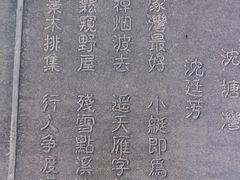 沈塘灣
沈廷芳
家灣最好 小艇即為
棹烟波去 遥天雁字
窺野屋 殘雪點溪
景木排集 行人争渡